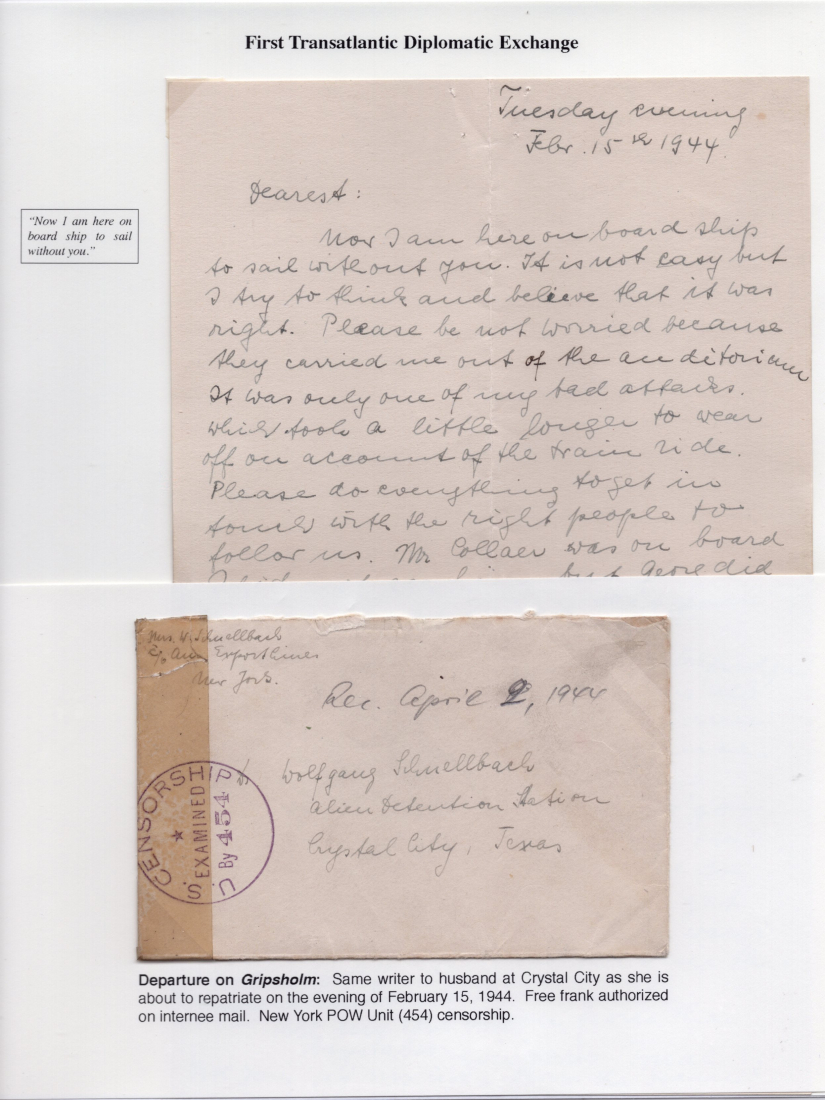 First Transatlantic Diplomatic Exchange
Tuesday evening
Febr. 15th 1944.
Dearest:
"Now I am here on
board ship to sail
without you."
Now I am here on board ship
to sail without you. It is not easy but
I try to think and believe that it was
right. Please be not worried because
they carried me out of the auditorium
It was only one of my bad attacks.
which took a little longer to wear
off on account of the train ride.
Please do everything to get in
touch with the right people to
follow us. Mr Collaer was on board
but did
Mrs. W. Schnellbach
c/o Am Export Lines
New York.
Rec. April 2, 1944
Dr. Wolfgang Schnellbach
Alien Detention Station
Crystal City, Texas
U.S. CENSORSHIP
EXAMINED
By 454
Departure on Gripsholm: Same writer to husband at Crystal City as she is
about to repatriate on the evening of February 15, 1944. Free frank authorized
on internee mail. New York POW Unit (454) censorship.